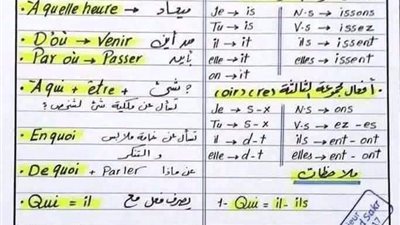 A quelle heure → ميعاد
D'où → Venir من أين
Par où → Passer بأين
A qui + être + شئ ?
نسأل عن ملكية شئ لشخص؟
En quoi نسأل عن خامة ملابس
و التنكر
De quoi + Parler عن ماذا
Qui = il يصرف فعل مع
Je → is
Tu → is
il → it
elle → it
on → it
N.s → issons
V.s → issez
ils → issent
elles → issent
أفعال مجموعة الثالثة (re) (oir)
Je → s-x
Tu → s-x
il → d-t
elle → d-t
N/s → ons
V.s → ez-es
ils → ent-ont
elles → ent-ont
ملاحظات
1- Qui = il-ils
Sakr